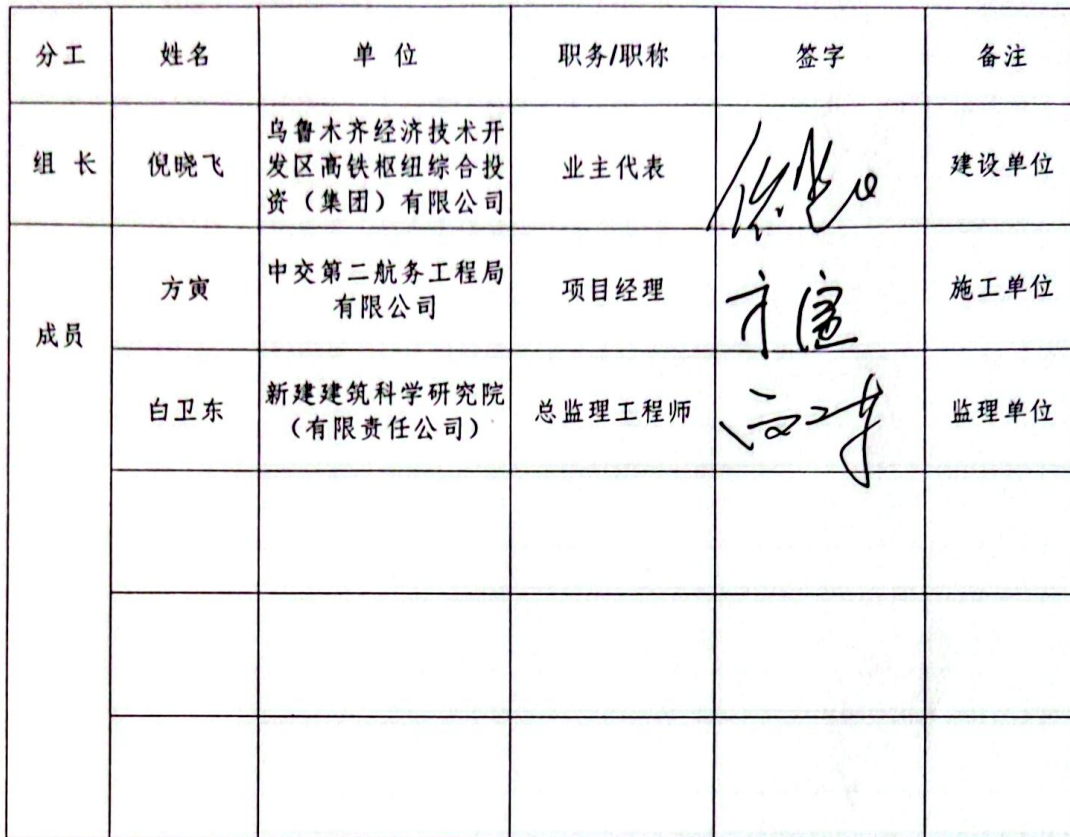 分工 姓名 单位 职务/职称 签字 备注
组长 倪晓飞 乌鲁木齐经济技术开
发区高铁枢纽综合投
资（集团）有限公司 业主代表 建设单位
成员 方寅 中交第二航务工程局
有限公司 项目经理 方寅 施工单位
白卫东 新建建筑科学研究院
（有限责任公司） 总监理工程师 监理单位